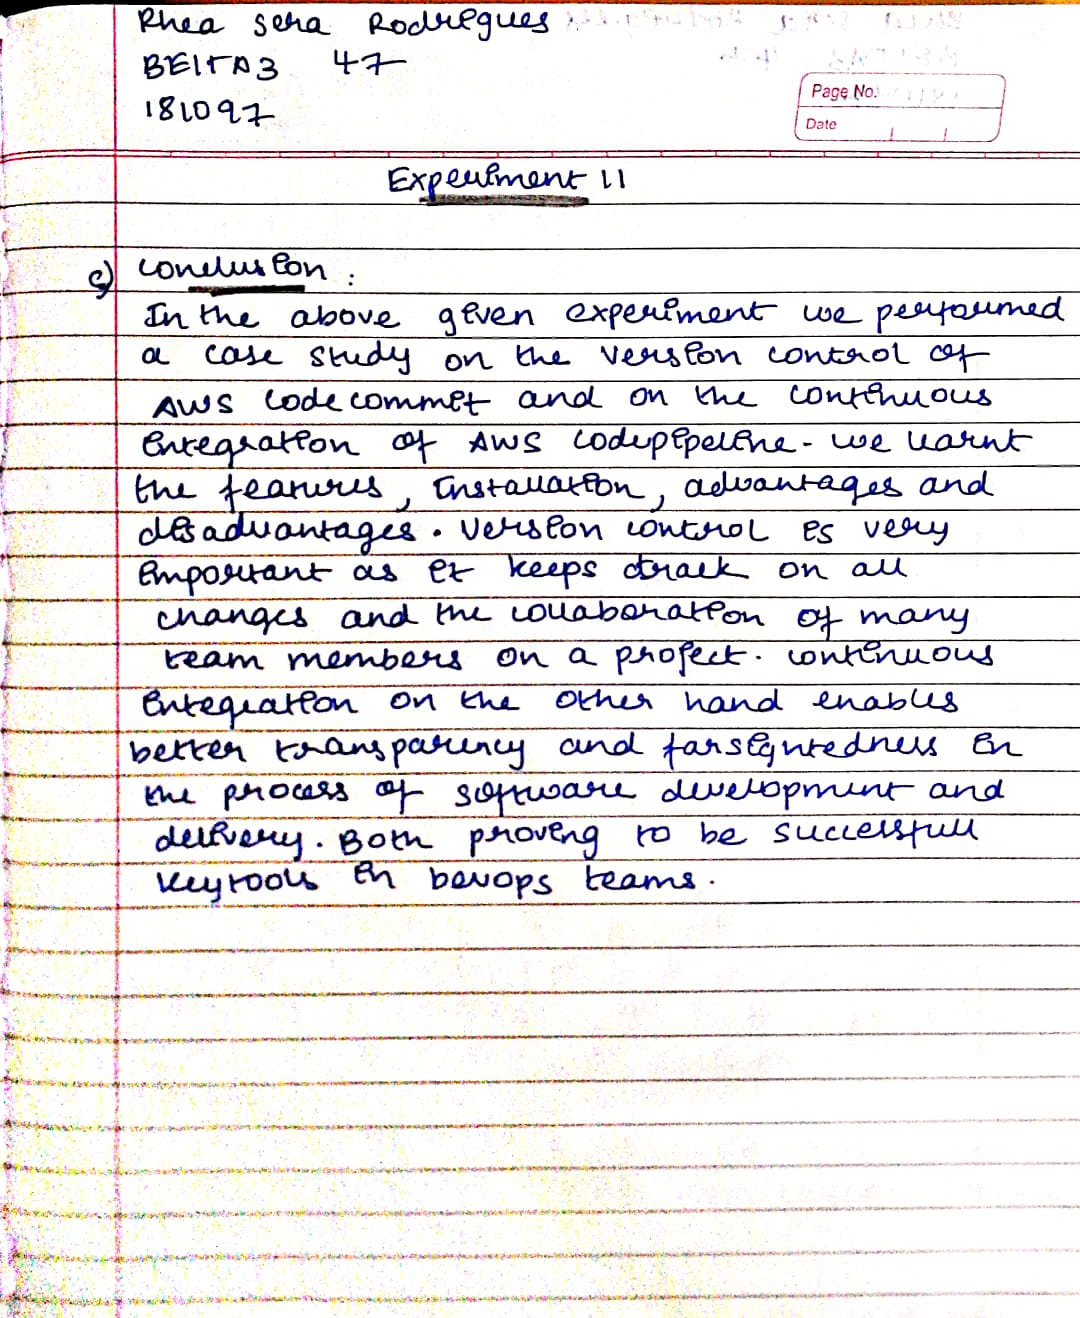 Rhea Sera Rodrigues
BEITA3 47
181097
Page No.
Date
Experiment 11
c) Conclusion :
In the above given experiment we performed
a case study on the version control of
AWS Codecommit and on the continuous
integration of AWS codepipeline. we learnt
the features, installation, advantages and
disadvantages. Version control is very
important as it keeps track on all
changes and the collaboration of many
team members on a project. continuous
integration on the other hand enables
better transparency and farsightedness in
the process of software development and
delivery. Both proving to be successfull
keytools in Devops teams.